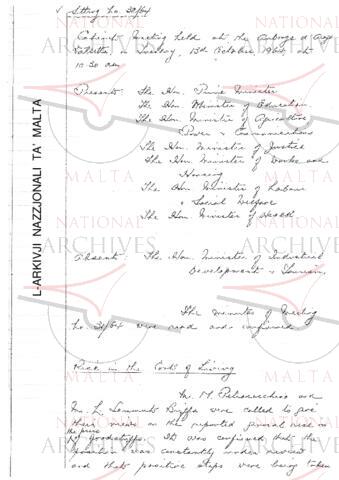 Sitting No. 32/64
Cabinet Meeting held at the Auberge d'Aragon
Valletta, on Tuesday, 13th October 1964, at
10.30 am
Present: The Hon. Prime Minister
The Hon. Minister of Education
The Hon. Minister of Agriculture
Power & Communications
The Hon. Minister of Justice
The Hon. Minister of Works and
Housing
The Hon. Minister of Labour
& Social Welfare
The Hon. Minister of Health
Absent: The Hon. Minister of Industrial
Development & Tourism
The minutes of Meeting
No. 31/64 were read and confirmed
Rise in the Cost of Living
M. M. and
M. L. were called to give
their views on the reported general rise in
the price
of foodstuffs. It was confirmed that the
position was constantly under review
and that positive steps were being taken
L-ARKIVJI NAZZJONALI TA' MALTA
NATIONAL
ARCHIVES
MALTA